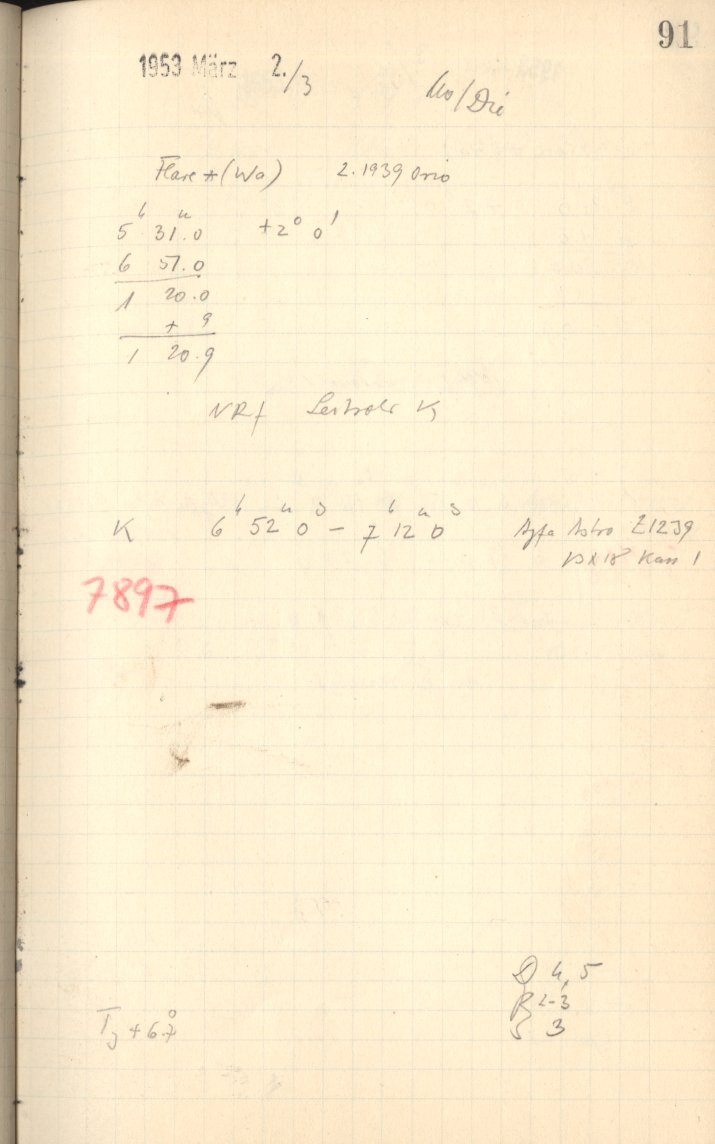 91
1953 März 2./3
Mo/Die
Flare * (Wa) 2.1939 Orio
5ʰ 31.0ᵐ +2° 0'
6 51.0
1 20.0
+ 9
1 20.9
NRf K
K 6ʰ 52ᵐ 0ˢ – 7ʰ 12ᵐ 0ˢ Agfa Astro Z1239
13x18 Kass 1
7897
D 4,5
R 2-3
S 3
T +6.7°